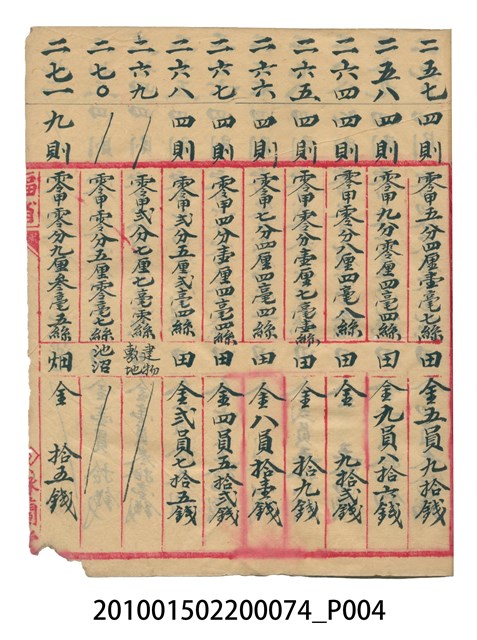 二五七 四則 零甲五分四厘壹毫七絲 田 金五員九拾錢
二五八 四則 零甲九分零厘四毫四絲 田 金九員八拾六錢
二六四 四則 零甲零分八厘四毫八絲 田 金 九拾弍錢
二六五 四則 零甲零分壹厘七毫壹絲 田 金 拾九錢
二六六 四則 零甲七分四厘四毫四絲 田 金八員拾壹錢
二六七 四則 零甲四分壹厘四毫四絲 田 金四員五拾弍錢
二六八 四則 零甲弍分五厘弍毫四絲 田 金弍員七拾五錢
二六九 零甲弍分七厘七毫零絲 建物敷地
二七〇 零甲零分五厘零毫七絲 池沼
二七一 九則 零甲零分九厘叁毫五絲 畑 金 拾五錢
201001502200074_P004